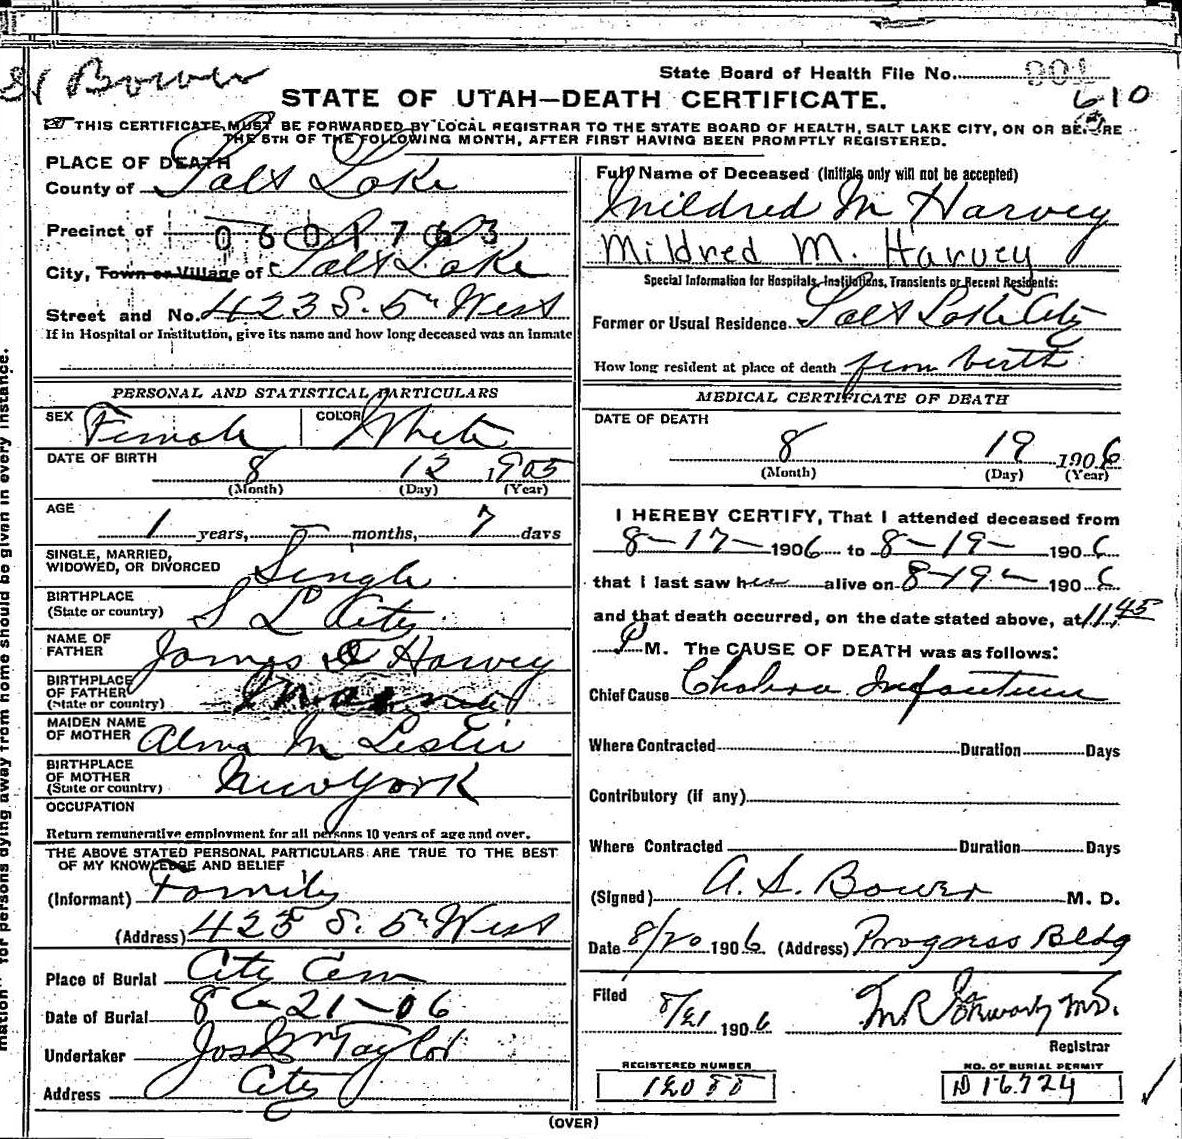 Bower
State Board of Health File No.
610
STATE OF UTAH—DEATH CERTIFICATE.
THIS CERTIFICATE MUST BE FORWARDED BY LOCAL REGISTRAR TO THE STATE BOARD OF HEALTH, SALT LAKE CITY, ON OR BEFORE
THE 5TH OF THE FOLLOWING MONTH, AFTER FIRST HAVING BEEN PROMPTLY REGISTERED.
PLACE OF DEATH
County of Salt Lake
Precinct of 0601763
City, Town or Village of Salt Lake
Street and No. 423 S. 5th West
If in Hospital or Institution, give its name and how long deceased was an inmate
PERSONAL AND STATISTICAL PARTICULARS
SEX Female COLOR White
DATE OF BIRTH
8 12 1905
(Month) (Day) (Year)
AGE
1 years, months, 7 days
SINGLE, MARRIED,
WIDOWED, OR DIVORCED Single
BIRTHPLACE
(State or country) S L City
NAME OF
FATHER James D Harvey
BIRTHPLACE
OF FATHER
(State or country)
MAIDEN NAME
OF MOTHER Alma M Leslie
BIRTHPLACE
OF MOTHER
(State or country) New York
OCCUPATION
Return remunerative employment for all persons 10 years of age and over.
THE ABOVE STATED PERSONAL PARTICULARS ARE TRUE TO THE BEST
OF MY KNOWLEDGE AND BELIEF
(Informant) Family
(Address) 423 S. 5th West
Place of Burial City Cem
Date of Burial 8-21-06
Undertaker Jos Wm Taylor
Address City
Full Name of Deceased (Initials only will not be accepted)
Mildred M Harvey
Mildred M. Harvey
Special Information for Hospitals, Institutions, Transients or Recent Residents:
Former or Usual Residence Salt Lake City
How long resident at place of death from birth
MEDICAL CERTIFICATE OF DEATH
DATE OF DEATH
8 19 1906
(Month) (Day) (Year)
I HEREBY CERTIFY, That I attended deceased from
8-17- 1906 to 8-19- 1906
that I last saw her alive on 8-19- 1906
and that death occurred, on the date stated above, at 11.45
P M. The CAUSE OF DEATH was as follows:
Chief Cause Cholera Infantum
Where Contracted Duration Days
Contributory (if any)
Where Contracted Duration Days
(Signed) A. S. Bower M. D.
Date 8/20 1906 (Address) Progress Bldg
Filed
8/21 1906 M.R. Stewart M.D.
Registrar
REGISTERED NUMBER
NO. OF BURIAL PERMIT
D 16724
(OVER)
mation" for persons dying away from home should be given in every instance.